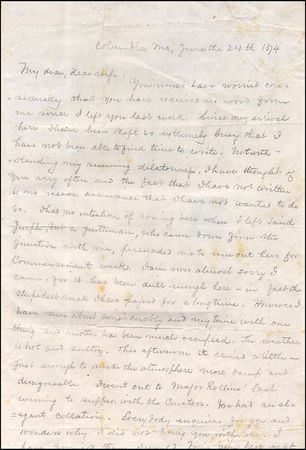 Columbia Mo, June the 24th 1874
My dear, dear wife: You must have worried con-
siderably that you have received no word from
me since I left you last week. Since my arrival
here I have been kept so extremely busy that I
have not been able to find time to write. Notwith-
standing my seeming dilatoriness, I have thought of
you very often and the fact that I have not written
is no reason assurance that I have not wanted to do
so. I had no intention of coming here when I left Saint
Joseph, but a gentleman, who came down from the
Junction with me, persuaded me to come out here for
Commencement week. I am now almost sorry I
came, for it has been dull enough here – in fact the
stupidest week I have passed for a long time. However I
have run about considerably and my time with one
thing and another has been much occupied. The weather
is hot and sultry. This afternoon it rained a little –
just enough to make the atmosphere more damp and
disagreeable. I went out to Major Rollins' last
evening to supper with the Curators. We had an ele-
gant collation. Everybody enquires for you and
wonders why I did not bring you with me. I
have